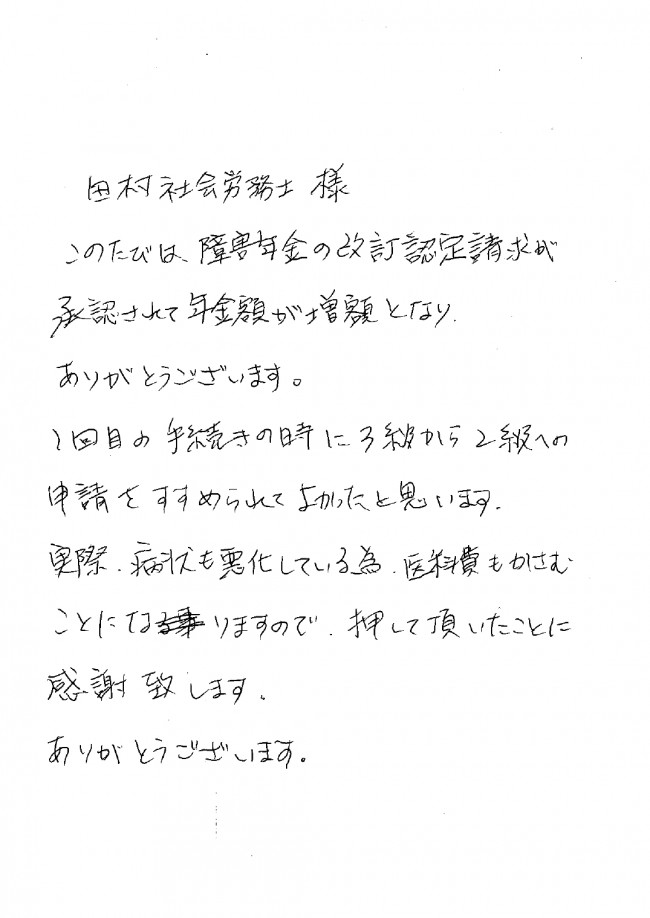 田村社会労務士 様
このたびは、障害年金の改訂認定請求が
承認されて年金額が増額となり、
ありがとうございます。
1回目の手続きの時に3級から2級への
申請をすすめられてよかったと思います。
実際、病状も悪化している為、医科費もかさむ
ことになりますので、押して頂いたことに
感謝致します。
ありがとうございます。